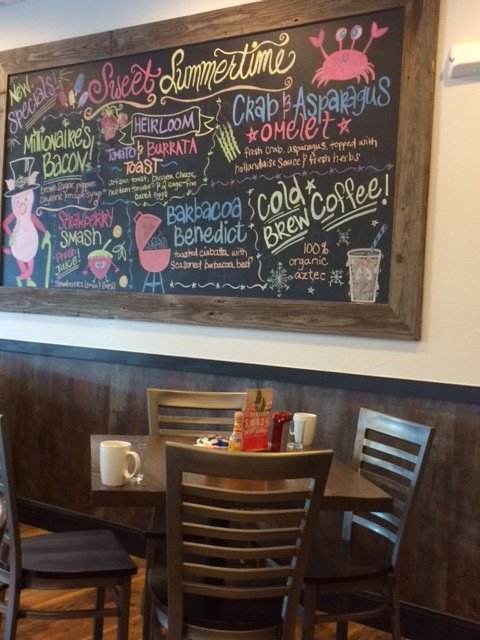 New
Specials!
Sweet Summertime
Millionaire's
Bacon!
brown sugar, pepper,
cayenne, maple syrup
HEIRLOOM
Tomato & BURRATA
TOAST
artisan toast, burrata cheese,
heirloom tomatoes & 2 cage-free
basted eggs
Crab & Asparagus
OMELET
fresh crab, asparagus, topped with
hollandaise sauce & fresh herbs
Strawberry
SMASH
Fresh
Juice!
strawberries, lemon & basil
Barbacoa
Benedict
toasted ciabatta with
seasoned barbacoa beef
Cold
Brew Coffee!
100%
organic
aztec
SMASH